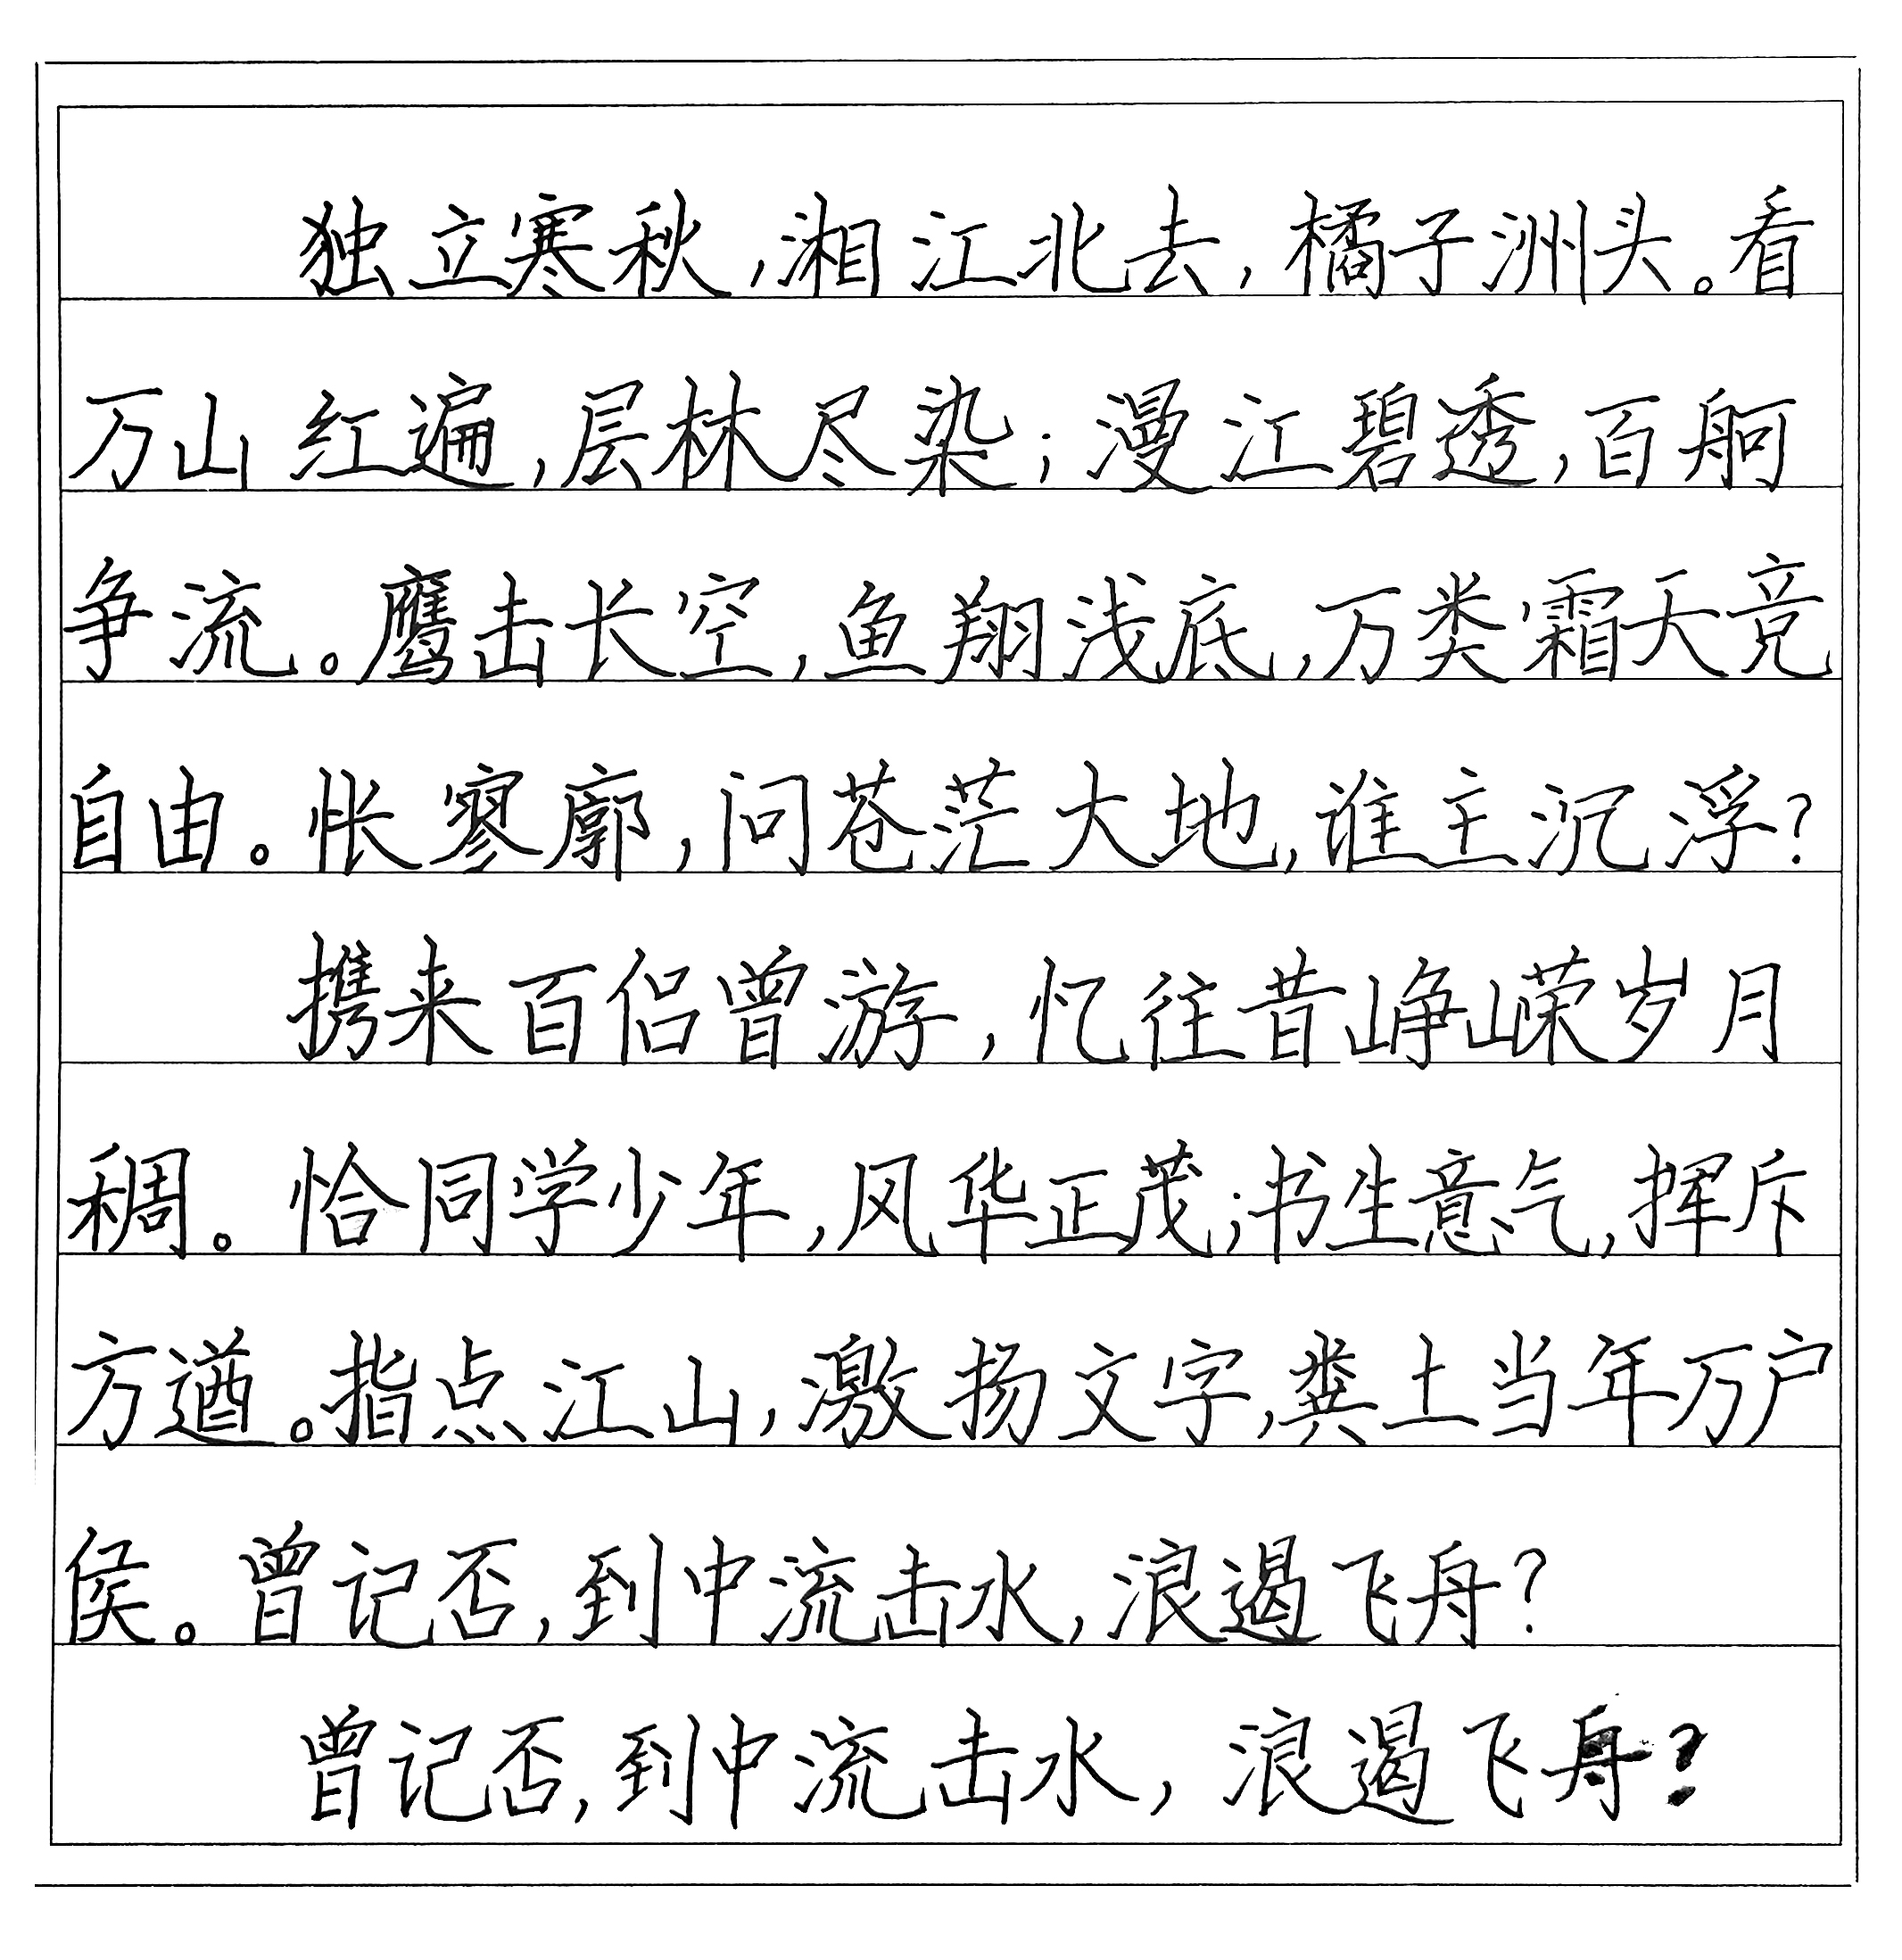 独立寒秋,湘江北去,橘子洲头。看
万山红遍,层林尽染;漫江碧透,百舸
争流。鹰击长空,鱼翔浅底,万类霜天竞
自由。怅寥廓,问苍茫大地,谁主沉浮?
携来百侣曾游,忆往昔峥嵘岁月
稠。恰同学少年,风华正茂;书生意气,挥斥
方遒。指点江山,激扬文字,粪土当年万户
侯。曾记否,到中流击水,浪遏飞舟?
曾记否,到中流击水,浪遏飞舟?